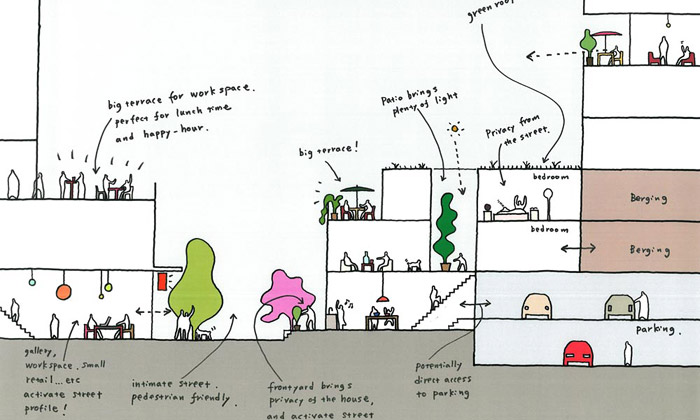 green roof
big terrace for work space.
perfect for lunch time
and happy-hour.
Patio brings
plenty of light
Privacy from
the street.
big terrace!
bedroom
Berging
bedroom
Berging
parking.
gallery,
workspace. small
retail...etc
activate street
profile!
intimate street.
pedestrian friendly.
frontyard brings
privacy of the house,
and activate street
potentially
direct access
to parking